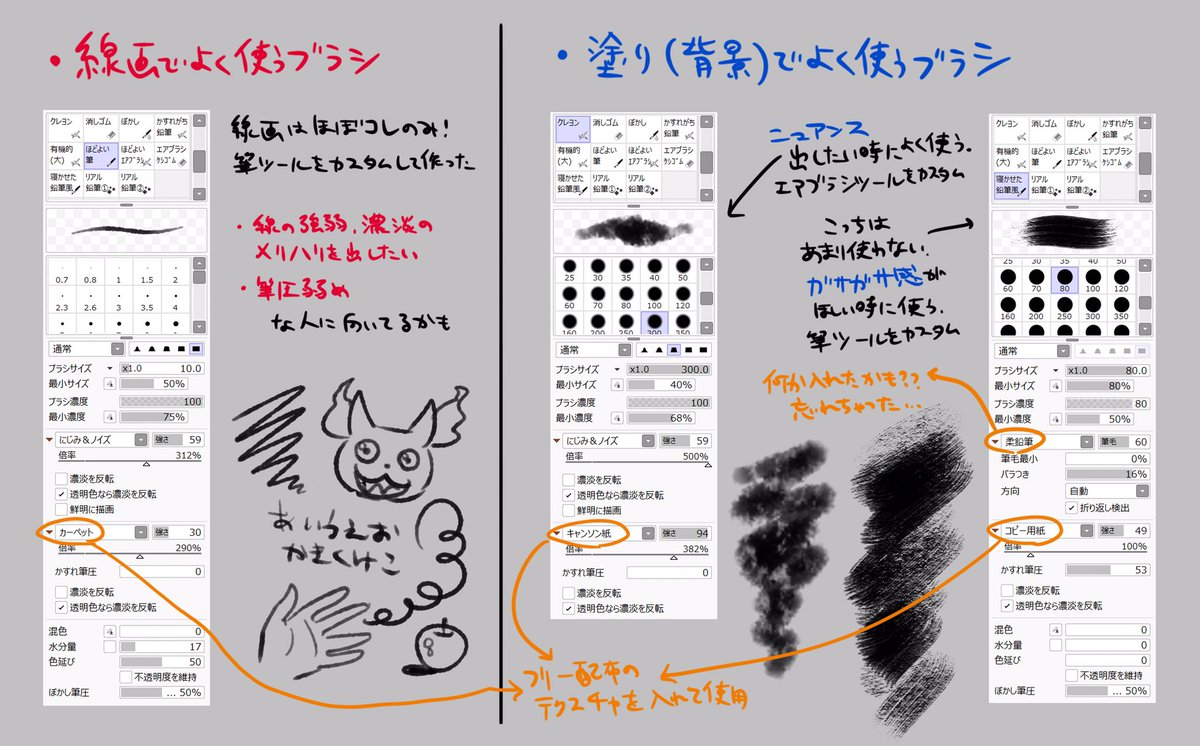 ・線画でよく使うブラシ
クレヨン
消しゴム
ぼかし
かすれがち
鉛筆
有機的
(大)
ほどよい
筆
ほどよい
エアブラシ
エアブラシ
ケシゴム
寝かせた
鉛筆風
リアル
鉛筆①
リアル
鉛筆②
0.7 0.8 1 1.5 2
2.3 2.6 3 3.5 4
通常
ブラシサイズ x1.0 10.0
最小サイズ 50%
ブラシ濃度 100
最小濃度 75%
にじみ&ノイズ 強さ 59
倍率 312%
濃淡を反転
透明色なら濃淡を反転
鮮明に描画
カーペット 強さ 30
倍率 290%
かすれ筆圧 0
濃淡を反転
透明色なら濃淡を反転
混色 0
水分量 17
色延び 50
不透明度を維持
ぼかし筆圧 ... 50%
線画はほぼコレのみ!
筆ツールをカスタムして作った
・線の強弱、濃淡の
メリハリを出したい
・筆圧弱め
な人に向いてるかも
あいうえお
かきくけこ
8
・塗り(背景)でよく使うブラシ
クレヨン
消しゴム
ぼかし
かすれがち
鉛筆
有機的
(大)
ほどよい
筆
ほどよい
エアブラシ
エアブラシ
ケシゴム
寝かせた
鉛筆風
リアル
鉛筆①
リアル
鉛筆②
25 30 35 40 50
60 70 80 100 120
160 200 250 300 350
通常
ブラシサイズ x1.0 300.0
最小サイズ 40%
ブラシ濃度 100
最小濃度 68%
にじみ&ノイズ 強さ 59
倍率 500%
濃淡を反転
透明色なら濃淡を反転
鮮明に描画
キャンソン紙 強さ 94
倍率 382%
かすれ筆圧 0
濃淡を反転
透明色なら濃淡を反転
ニュアンス
出したい時によく使う.
エアブラシツールをカスタム
こっちは
あまり使わない.
ガサガサ感が
ほしい時に使う.
筆ツールをカスタム
何か入れたかも??
忘れちゃった…
フリー配布の
テクスチャを入れて使用
クレヨン
消しゴム
ぼかし
かすれがち
鉛筆
有機的
(大)
ほどよい
筆
ほどよい
エアブラシ
エアブラシ
ケシゴム
寝かせた
鉛筆風
リアル
鉛筆①
リアル
鉛筆②
25 30 35 40 50
60 70 80 100 120
160 200 250 300 350
通常
ブラシサイズ x1.0 80.0
最小サイズ 80%
ブラシ濃度 80
最小濃度 50%
柔鉛筆 筆毛 60
筆毛最小 0%
バラつき 16%
方向 自動
折り返し検出
コピー用紙 強さ 49
倍率 100%
かすれ筆圧 53
濃淡を反転
透明色なら濃淡を反転
混色 0
水分量 0
色延び 0
不透明度を維持
ぼかし筆圧 ... 50%